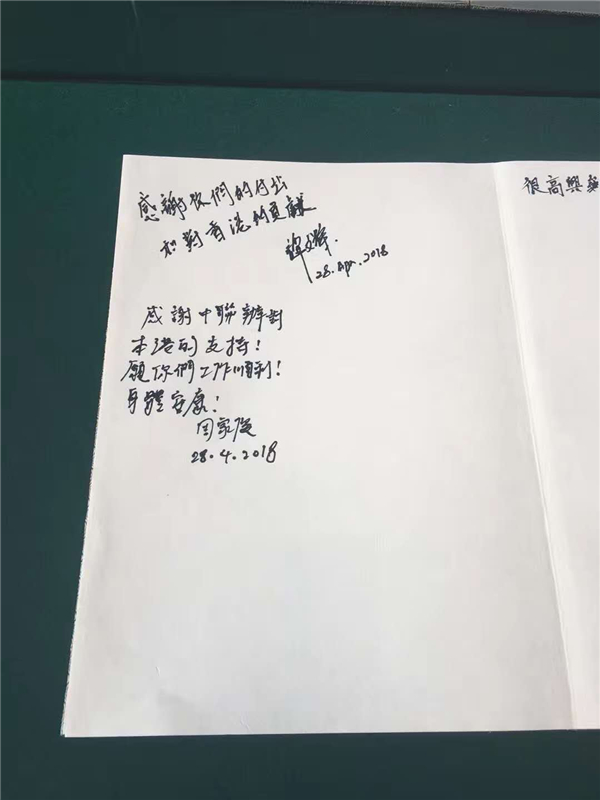 感謝你們的付出
和對香港的貢獻
28.Apr.2018
感謝中聯辦對
本港的支持！
願你們工作順利！
身體安康！
周家俊
28.4.2018
很高興